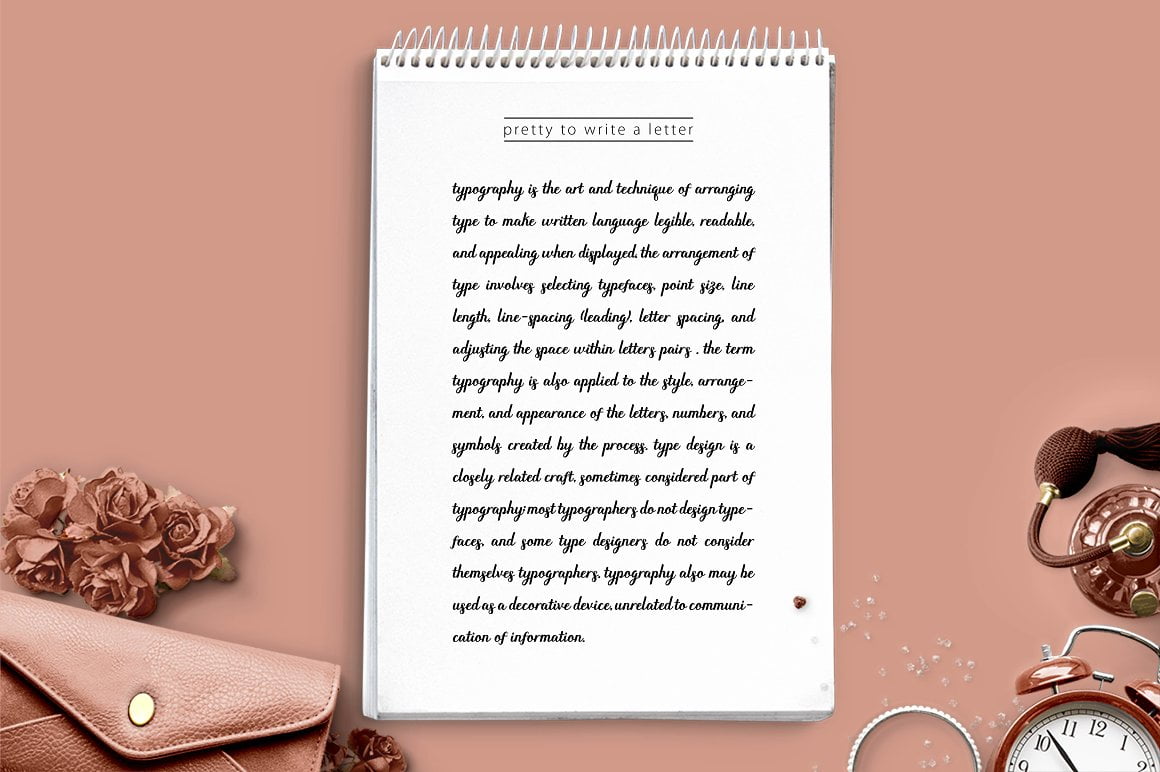 pretty to write a letter
typography is the art and technique of arranging
type to make written language legible, readable,
and appealing when displayed. the arrangement of
type involves selecting typefaces, point size, line
length, line-spacing (leading), letter spacing, and
adjusting the space within letters pairs . the term
typography is also applied to the style, arrange-
ment, and appearance of the letters, numbers, and
symbols created by the process. type design is a
closely related craft, sometimes considered part of
typography; most typographers do not design type-
faces, and some type designers do not consider
themselves typographers. typography also may be
used as a decorative device, unrelated to communi-
cation of information.
10 11 12 1 2